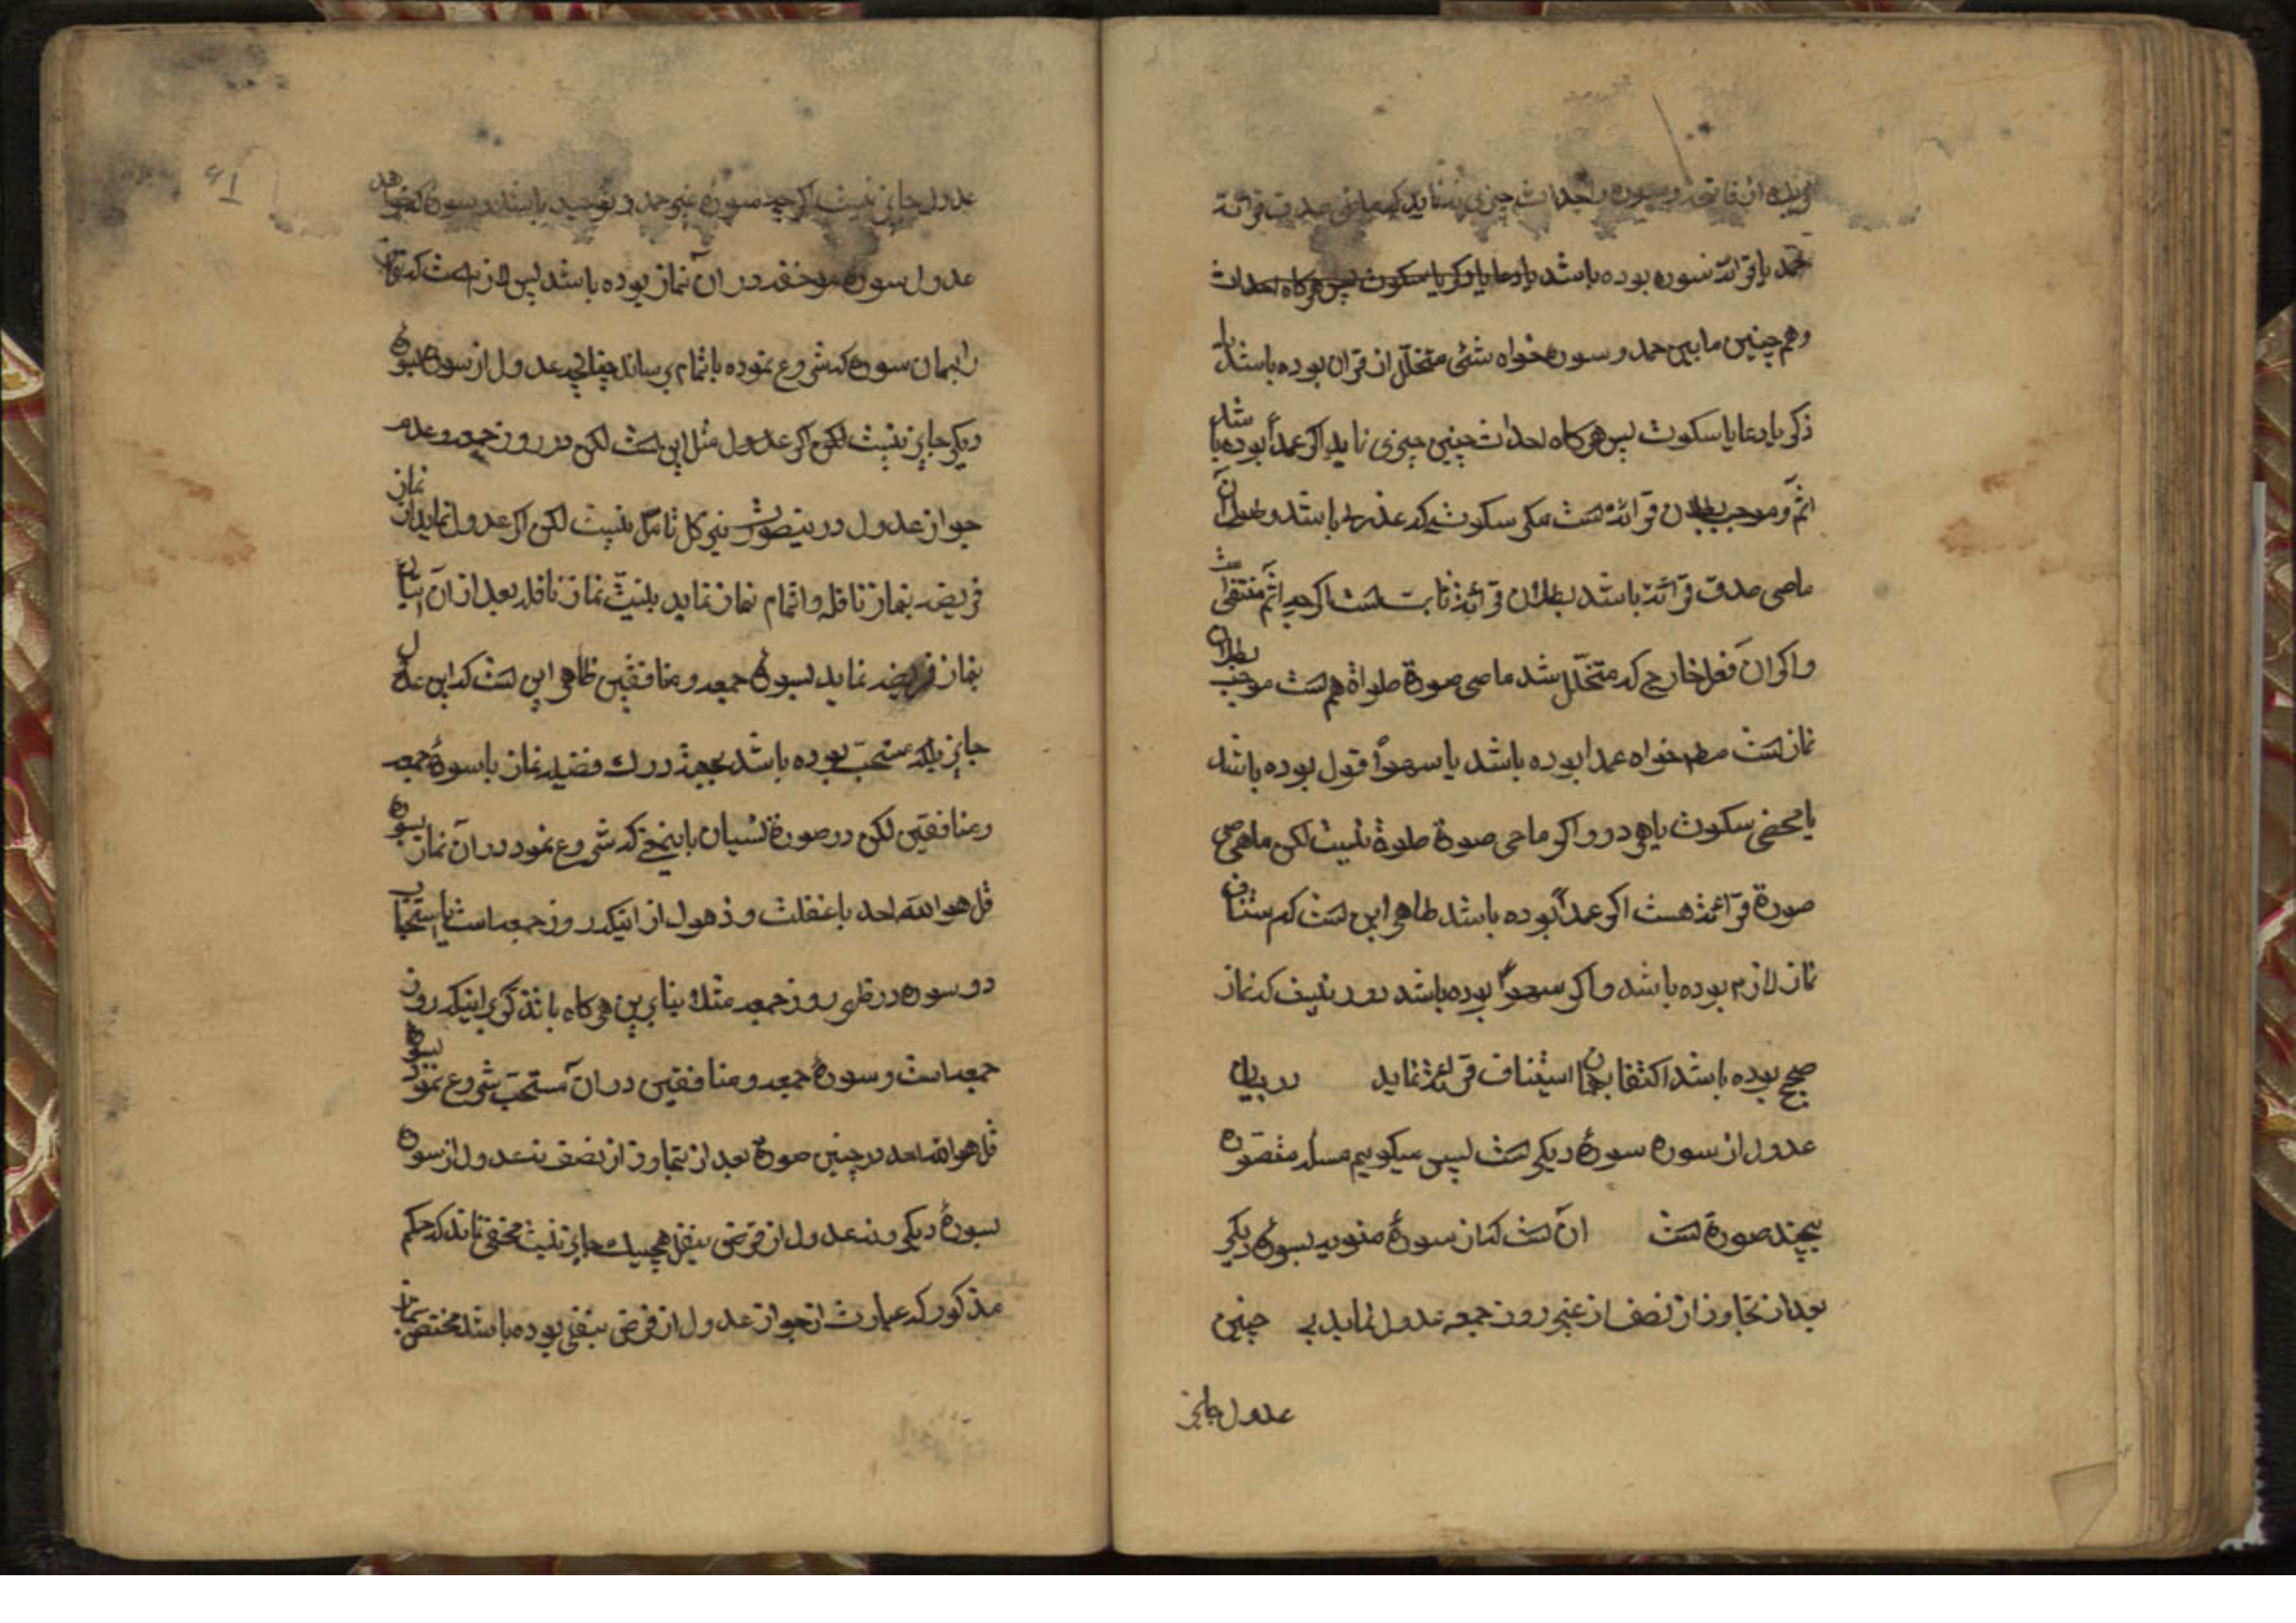 از فاتحه و سوره واحداث چیزی ننماید که ماحی صدق قرائة
حمد یا قرائة سوره بوده باشد یا دعا یا ذکر یا سکوت پس هرکاه احداث
وهم چنین مابین حمد و سوره خواه شئی متخلّل از قران بوده باشد یا
ذکر یا دعا یا سکوت پس هرکاه احداث چنین چیزی نماید اکر عمداً بوده باشد
اثمّ و موجب بطلان قرائة است مکر سکوتی که عذر باشد وطول آن
ماحی صدق قرائة باشد بطلان قرائة ثابت است اکرچه اثم منتفی است
واکر ان فعل خارج که متخلّل شد ماحی صورة صلواة هم است موجب بطلان
نماز است مطم خواه عمدا بوده باشد یا سهواً قول بوده باشد
یا محض سکوت یا هر دو واکر ماحی صورة صلوة نیست لکن ماحی
صورة قرائة هست اکر عمداً بوده باشد ظاهر این است که استیناف
نماز لازم بوده باشد واکر سهواً بوده باشد دور نیست که نماز
صحیح بوده باشد اکتفا بهمان استیناف قرائة نماید در بیان
عدول از سوره بسورهٔ دیکر است پس میکوییم مسئله متصوّره
بچند صورة است ان است که از سورهٔ منویه بسورهٔ دیکر
بعد از تجاوز از نصف از غیر روز جمعه عدول نماید چنین
عدول جایز
عدول جایز نیست اکرچه سوره غیر حمد و توحید باشد و سوره که
عدول سوره موخفه در ان نماز بوده باشد پس لازم است که
را بهمان سوره که شروع نموده باتمام برساند چنانچه عدول از سوره بسوره
دیکر جایز نیست لکن اکر عدول مثل این است لکن در روز جمعه وعدم
جواز عدول در اینصورت نیز کل تامّل نیست لکن اکر عدول نماید از نماز
فریضه بنماز نافله واتمام نماز نماید بنیّت نماز نافله بعد از آن اتیان
بنماز فریضه نماید بسورهٔ جمعه و منافقین ظاهر این است که این عدول
جایز بلکه مستحبّ بوده باشد بجهة درک فضیلة نماز با سورهٔ جمعه
ومنافقین لکن در صورة نسیان باینمعنی که شروع نمود در آن نماز بسوره
قل هو الله احد با غفلت و ذهول از اینکه روز جمعه است یا استحباب
دو سوره در ظهر روز جمعه مثلا بنابرین هرکاه با تذکّر اینکه روز
جمعه است و سورهٔ جمعه ومنافقین در ان مستحبّ شروع نمود بسورهٔ
قل هو الله احد در چنین صورة بعد از تجاوز از نصف نه عدول از سوره
بسورهٔ دیکر و نه عدول از فرض بنفل هیچیک جایز نیست مخفی نماند که حکم
مذکور که عبارت از جواز عدول از فرض بنفل بوده باشد مختصّ بنماز